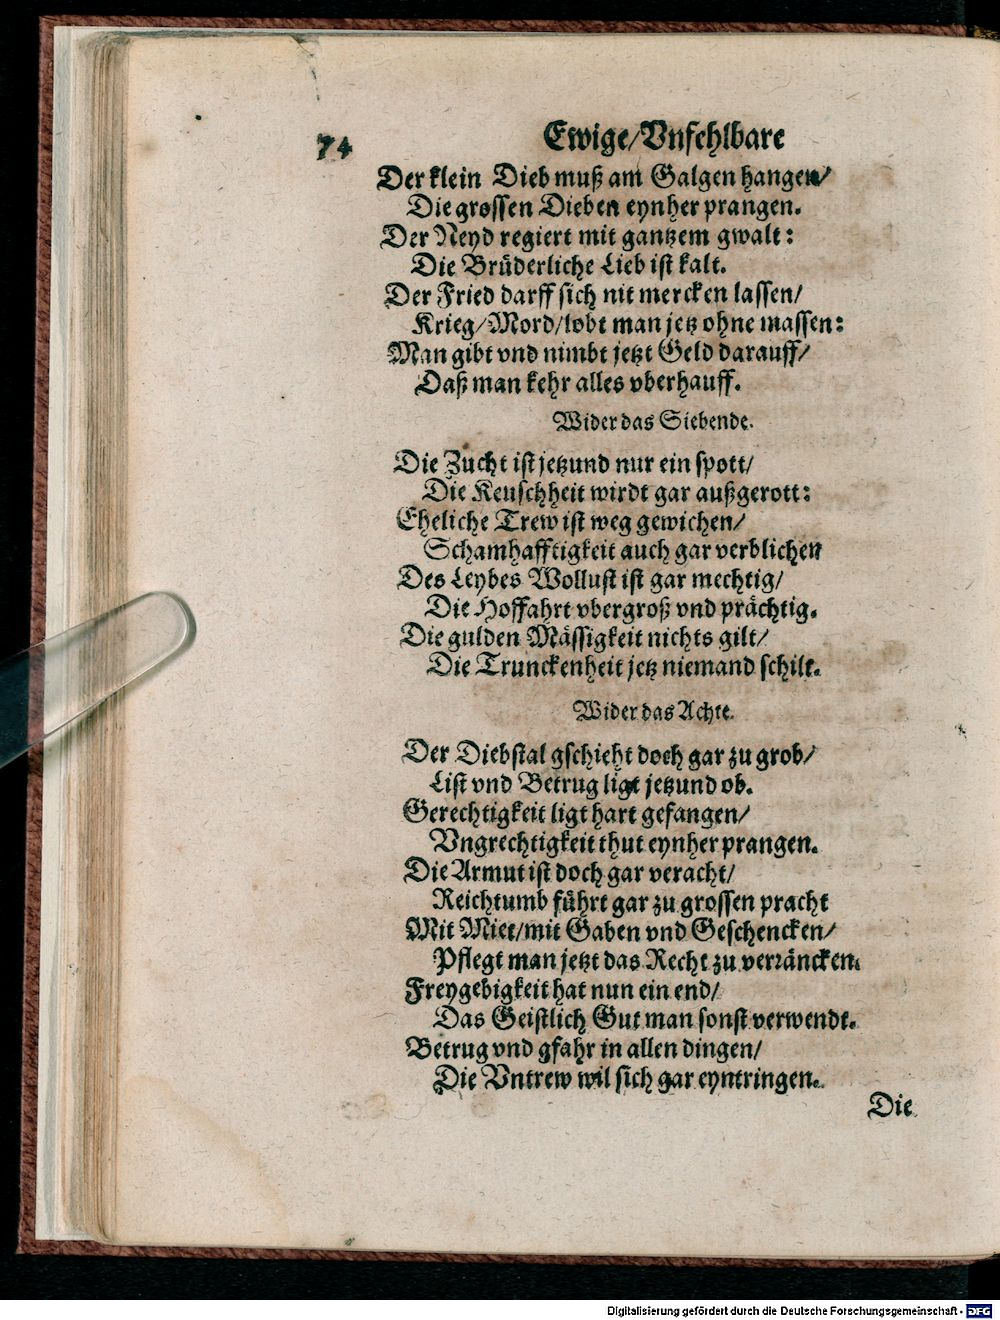 74 Ewige/Vnfehlbare
Der klein Dieb muß am Galgen hangen/
Die grossen Dieben eynher prangen.
Der Neyd regiert mit gantzem gwalt:
Die Brüderliche Lieb ist kalt.
Der Fried darff sich nit mercken lassen/
Krieg/Mord/lobt man jetz ohne massen:
Man gibt vnd nimbt jetzt Geld darauff/
Daß man kehr alles vberhauff.
Wider das Siebende.
Die Zucht ist jetzund nur ein spott/
Die Keuschheit wirdt gar außgerott:
Eheliche Trew ist weg gewichen/
Schamhafftigkeit auch gar verblichen
Des Leybes Wollust ist gar mechtig/
Die Hoffahrt vbergroß vnd prächtig.
Die gulden Mässigkeit nichts gilt/
Die Trunckenheit jetz niemand schilt.
Wider das Achte.
Der Diebstal gschieht doch gar zu grob/
List vnd Betrug ligt jetzund ob.
Gerechtigkeit ligt hart gefangen/
Vngrechtigkeit thut eynher prangen.
Die Armut ist doch gar veracht/
Reichtumb führt gar zu grossen pracht
Mit Miet/mit Gaben vnd Geschencken/
Pflegt man jetzt das Recht zu verräncken.
Freygebigkeit hat nun ein end/
Das Geistlich Gut man sonst verwendt.
Betrug vnd gfahr in allen dingen/
Die Vntrew wil sich gar eyntringen.
Die
Digitalisierung gefördert durch die Deutsche Forschungsgemeinschaft - DFG